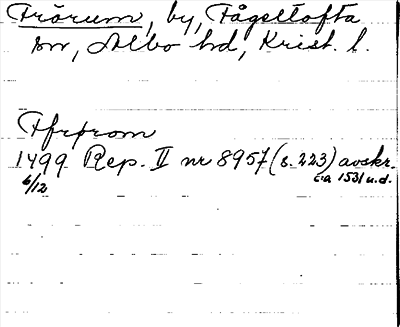 Frörum, by, Fågeltofta
sn, Albo hd, Krist. l.
Ffrþrom
1499 Rep. II nr 8957 (s. 223) avskr.
6/12 ca 1531 u.d.